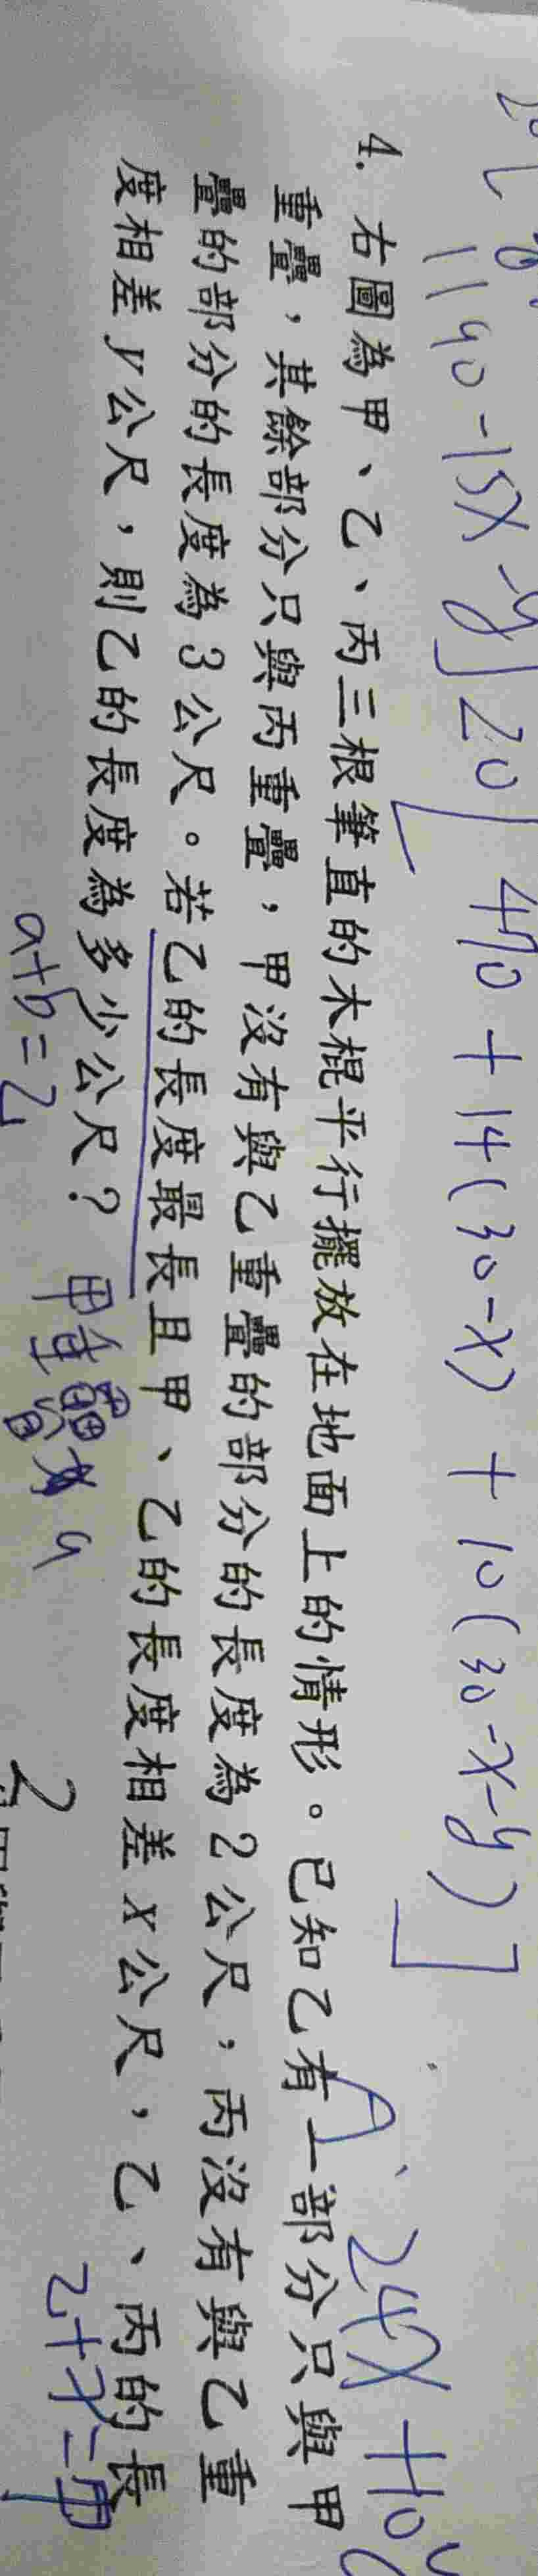 1190-15x-y]20
[470+14(30-x)+10(30-x-y)]
24x+10y
4. 右圖為甲、乙、丙三根筆直的木棍平行擺放在地面上的情形。已知乙有一部分只與甲
重疊，其餘部分只與丙重疊，甲沒有與乙重疊的部分的長度為2公尺，丙沒有與乙重
疊的部分的長度為3公尺。若乙的長度最長且甲、乙的長度相差x公尺，乙、丙的長
度相差y公尺，則乙的長度為多少公尺？
a+b=乙
甲重疊為a
2